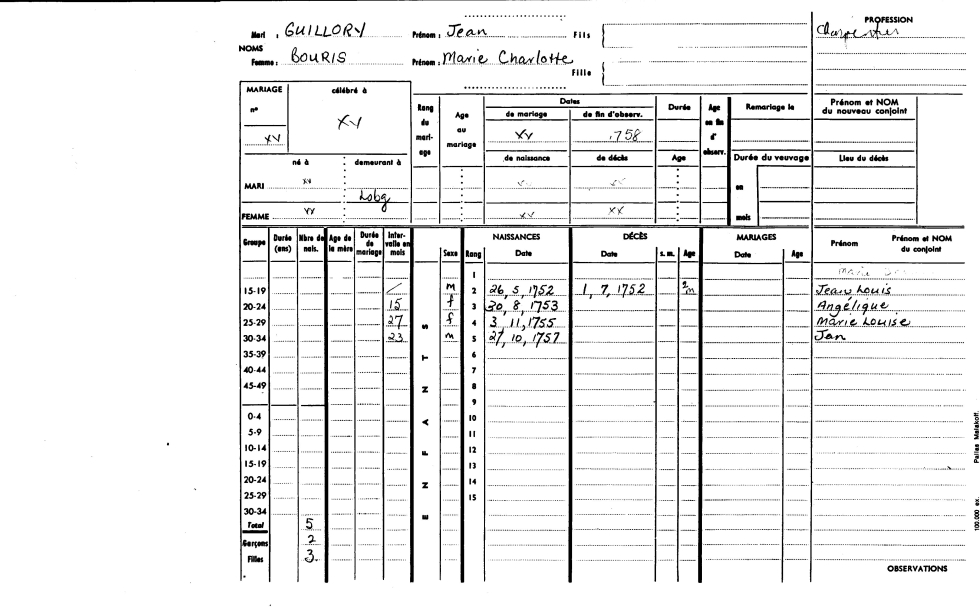 PROFESSION
Mari : GUILLORY Prénom : Jean Fils
Charpentier
NOMS
Femme : BOURIS Prénom : Marie Charlotte
Fille
MARIAGE célébré à Rang du mariage Age au mariage Dates Durée Age en fin d'observ. Remariage le Prénom et NOM du nouveau conjoint
n° de mariage de fin d'observ.
XV XV XV 1758
né à demeurant à de naissance de décès Age Durée du veuvage Lieu du décès
MARI XV XV XV en
Lobg
FEMME XV XV XX mois
Groupe Durée (ans) Nbre de nais. Age de la mère Durée de mariage Intervalle en mois ENFANTS Sexe Rang NAISSANCES Date DÉCÈS Date s. m. Age MARIAGES Date Age Prénom Prénom et NOM du conjoint
1 Marie
15-19 / m 2 26, 5, 1752 1, 7, 1752 2m Jean Louis
20-24 15 f 3 30, 8, 1753 Angélique
25-29 27 f 4 3, 11, 1755 Marie Louise
30-34 23 m 5 27, 10, 1757 Jan
35-39 6
40-44 7
45-49 8
9
0-4 10
5-9 11
10-14 12
15-19 13
20-24 14
25-29 15
30-34
Total 5
Garçons 2
Filles 3
OBSERVATIONS
100.000 ex. Pallas Malakoff.